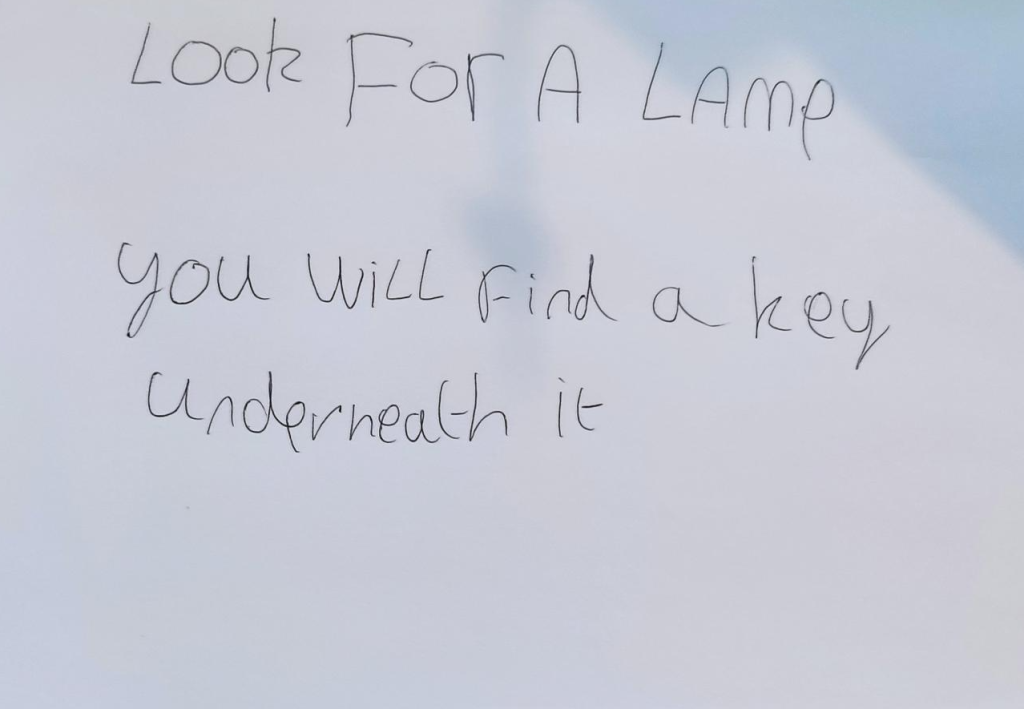 Look For A LAmp
you will Find a key
underneath it